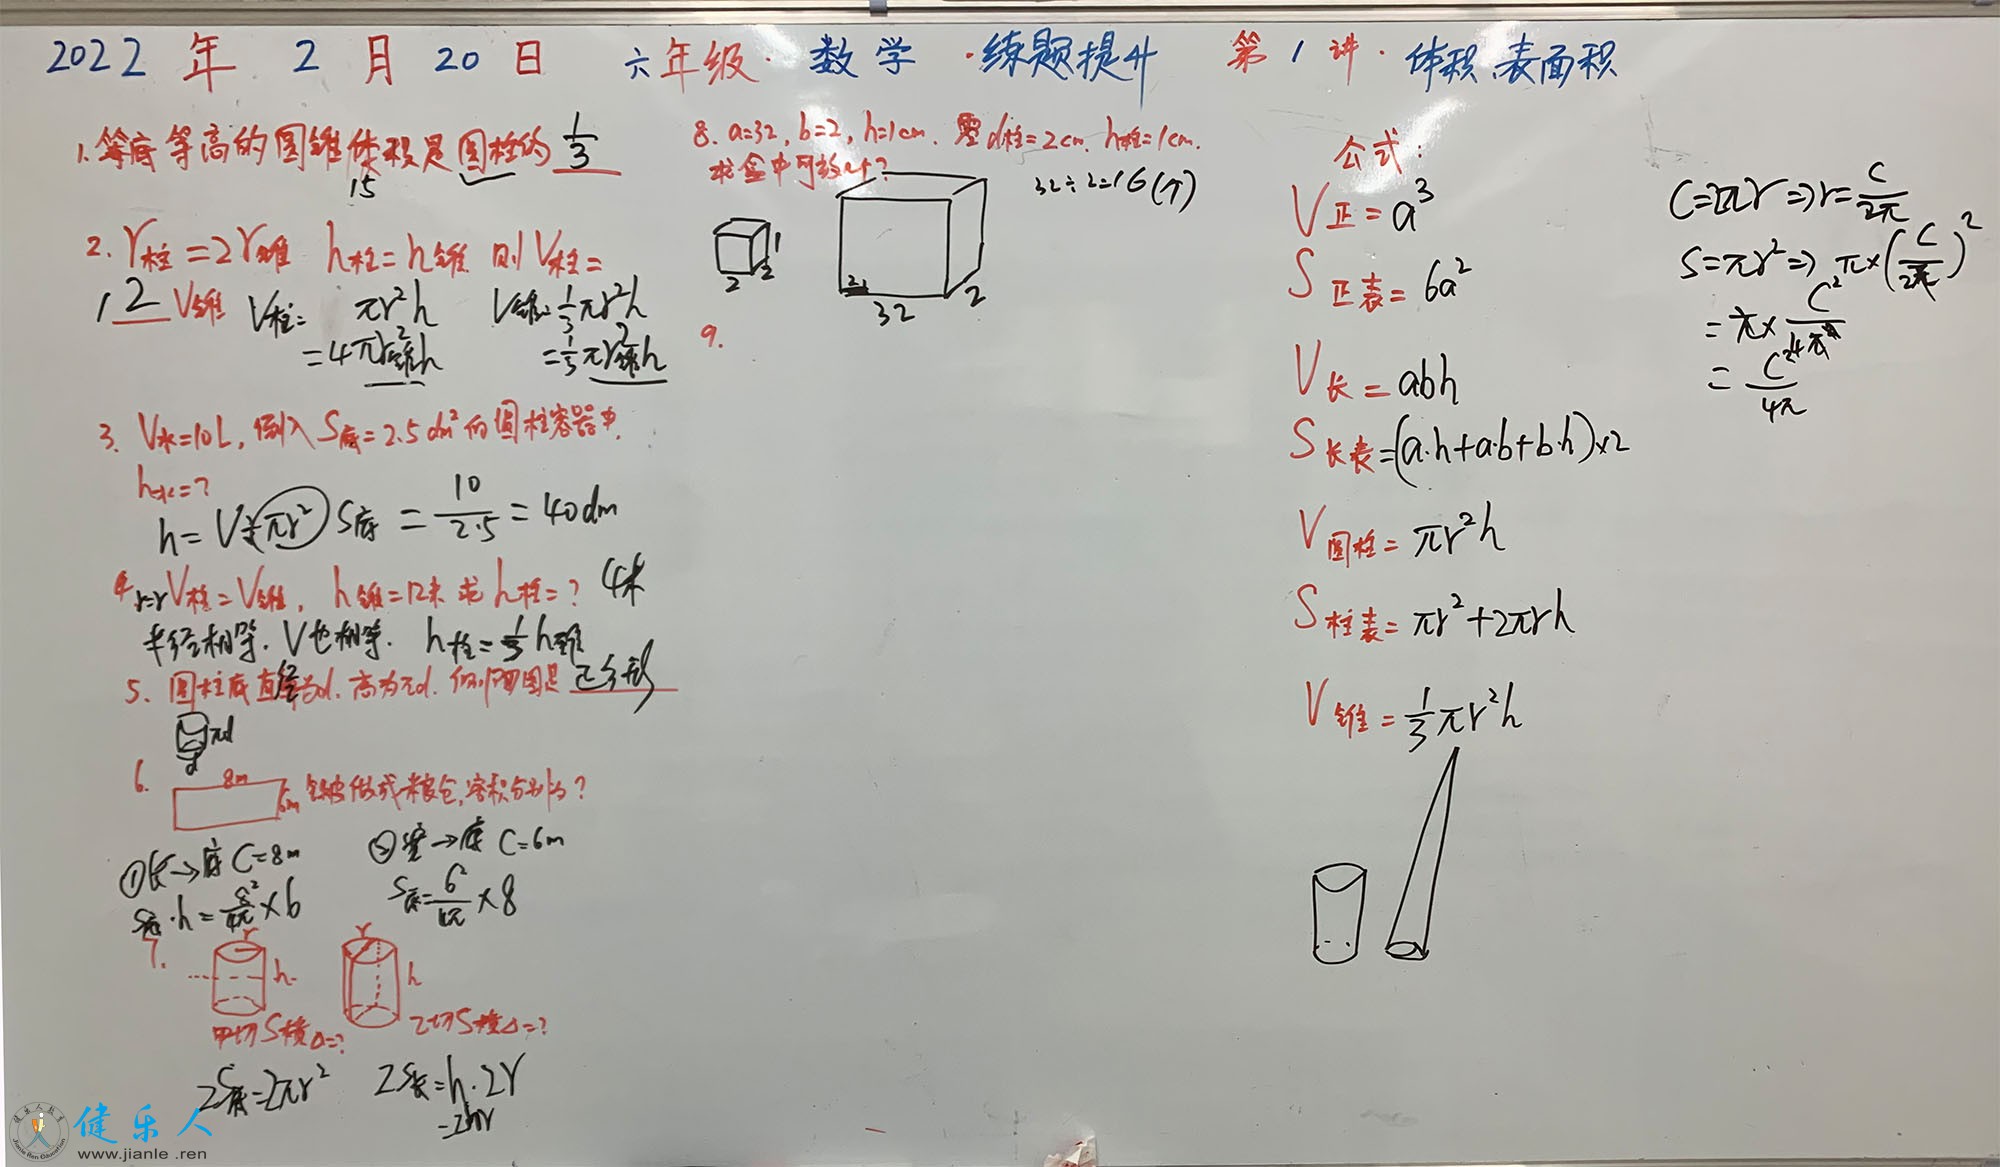 2022 年 2 月 20 日 六年级·数学·练题提升 第 1 讲·体积、表面积
1.等底等高的圆锥体积是圆柱的 1/3
15
2. r柱=2r锥 h柱=h锥 则V柱=
12 V锥 V柱= πr²h V锥= 1/3πr²h
=4πr²锥h =1/3πr²锥h
3. V水=10L,倒入S底=2.5dm²的圆柱容器中,
h水=?
h=V÷πr² S底 = 10/2.5 = 40dm
4. r=r V柱=V锥, h锥=12米 求h柱=? 4米
半径相等. V也相等. h柱=1/3h锥
5. 圆柱底直径为d. 高为πd. 侧面图是 正方形
πd
d
6. 8m 6m 做成粮仓,容积分别为?
①长→底 C=8m ②宽→底 C=6m
S底·h=8²/4π×6 S底=6²/4π×8
7. r h r h
甲切S横△=? 乙切S横△=?
2S底=2πr² 2S长=h·2r
=2hr
8. a=32, b=2, h=1cm. d柱=2cm. h柱=1cm.
求盒中可放几个?
32÷2=16(个)
1
2 2
2
32 2
9.
公式:
V正=a³
S正表=6a²
V长=abh
S长表=(a·h+a·b+b·h)×2
V圆柱=πr²h
S柱表=πr²+2πrh
V锥=1/3πr²h
C=2πr⇒r=C/2π
S=πr²⇒π×(C/2π)²
=π×C²/4π²
=C²/4π
健乐人
www.jianle.ren